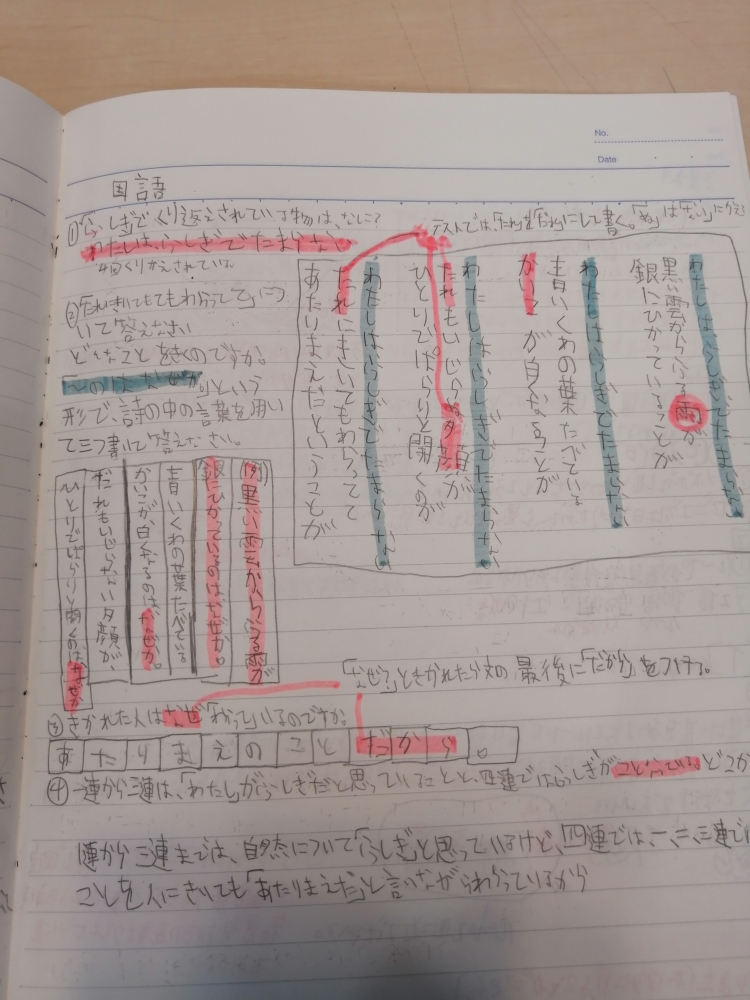 No.
Date
国語
①「ふしぎ」でくり返えされている物は、なに?
わたしは、ふしぎでたまらない
4回くりかえされている。
テストでは、「たれ」を「だれ」にして書く。「ぬ」は「ない」にかえる
わたしはふしぎでたまらない
黒い雲からふる雨が
銀にひかっていることが
わたしはふしぎでたまらない
青いくわの葉たべている
かいこが白くなることが
わたしはふしぎでたまらない
たれもいじらぬ夕顔が
ひとりでぱらりと開くのが
わたしはふしぎでたまらない
たれにきいてもわらってて
あたりまえだということが
②「たれにきいてもわらってて」につ
いて答えなさい
どんなことをきくのですか。
「~のはなぜか。」という
形で、詩の中の言葉を用い
て三つ書いて答えなさい。
(例)黒い雲からふる雨が
銀にひかっているのはなぜか。
青いくわの葉たべている
かいこが、白くなるのはなぜか。
だれもいじらない夕顔が
ひとりでぱらりと開くのはなぜか
「なぜ?」ときかれたら文の最後に「だから」をつける。
③きかれた人はなぜ「わらって」いるのですか。
あたりまえのことだから。
④一連から三連は、「わたし」がふしぎだと思っていることと、四連ではふしぎがことなっている。どこが
1連から三連までは、自然について「ふしぎ」と思っているけど、四連では、一、二、三連で
ことを人にきいても「あたりまえだ」と言いながらわらっているから